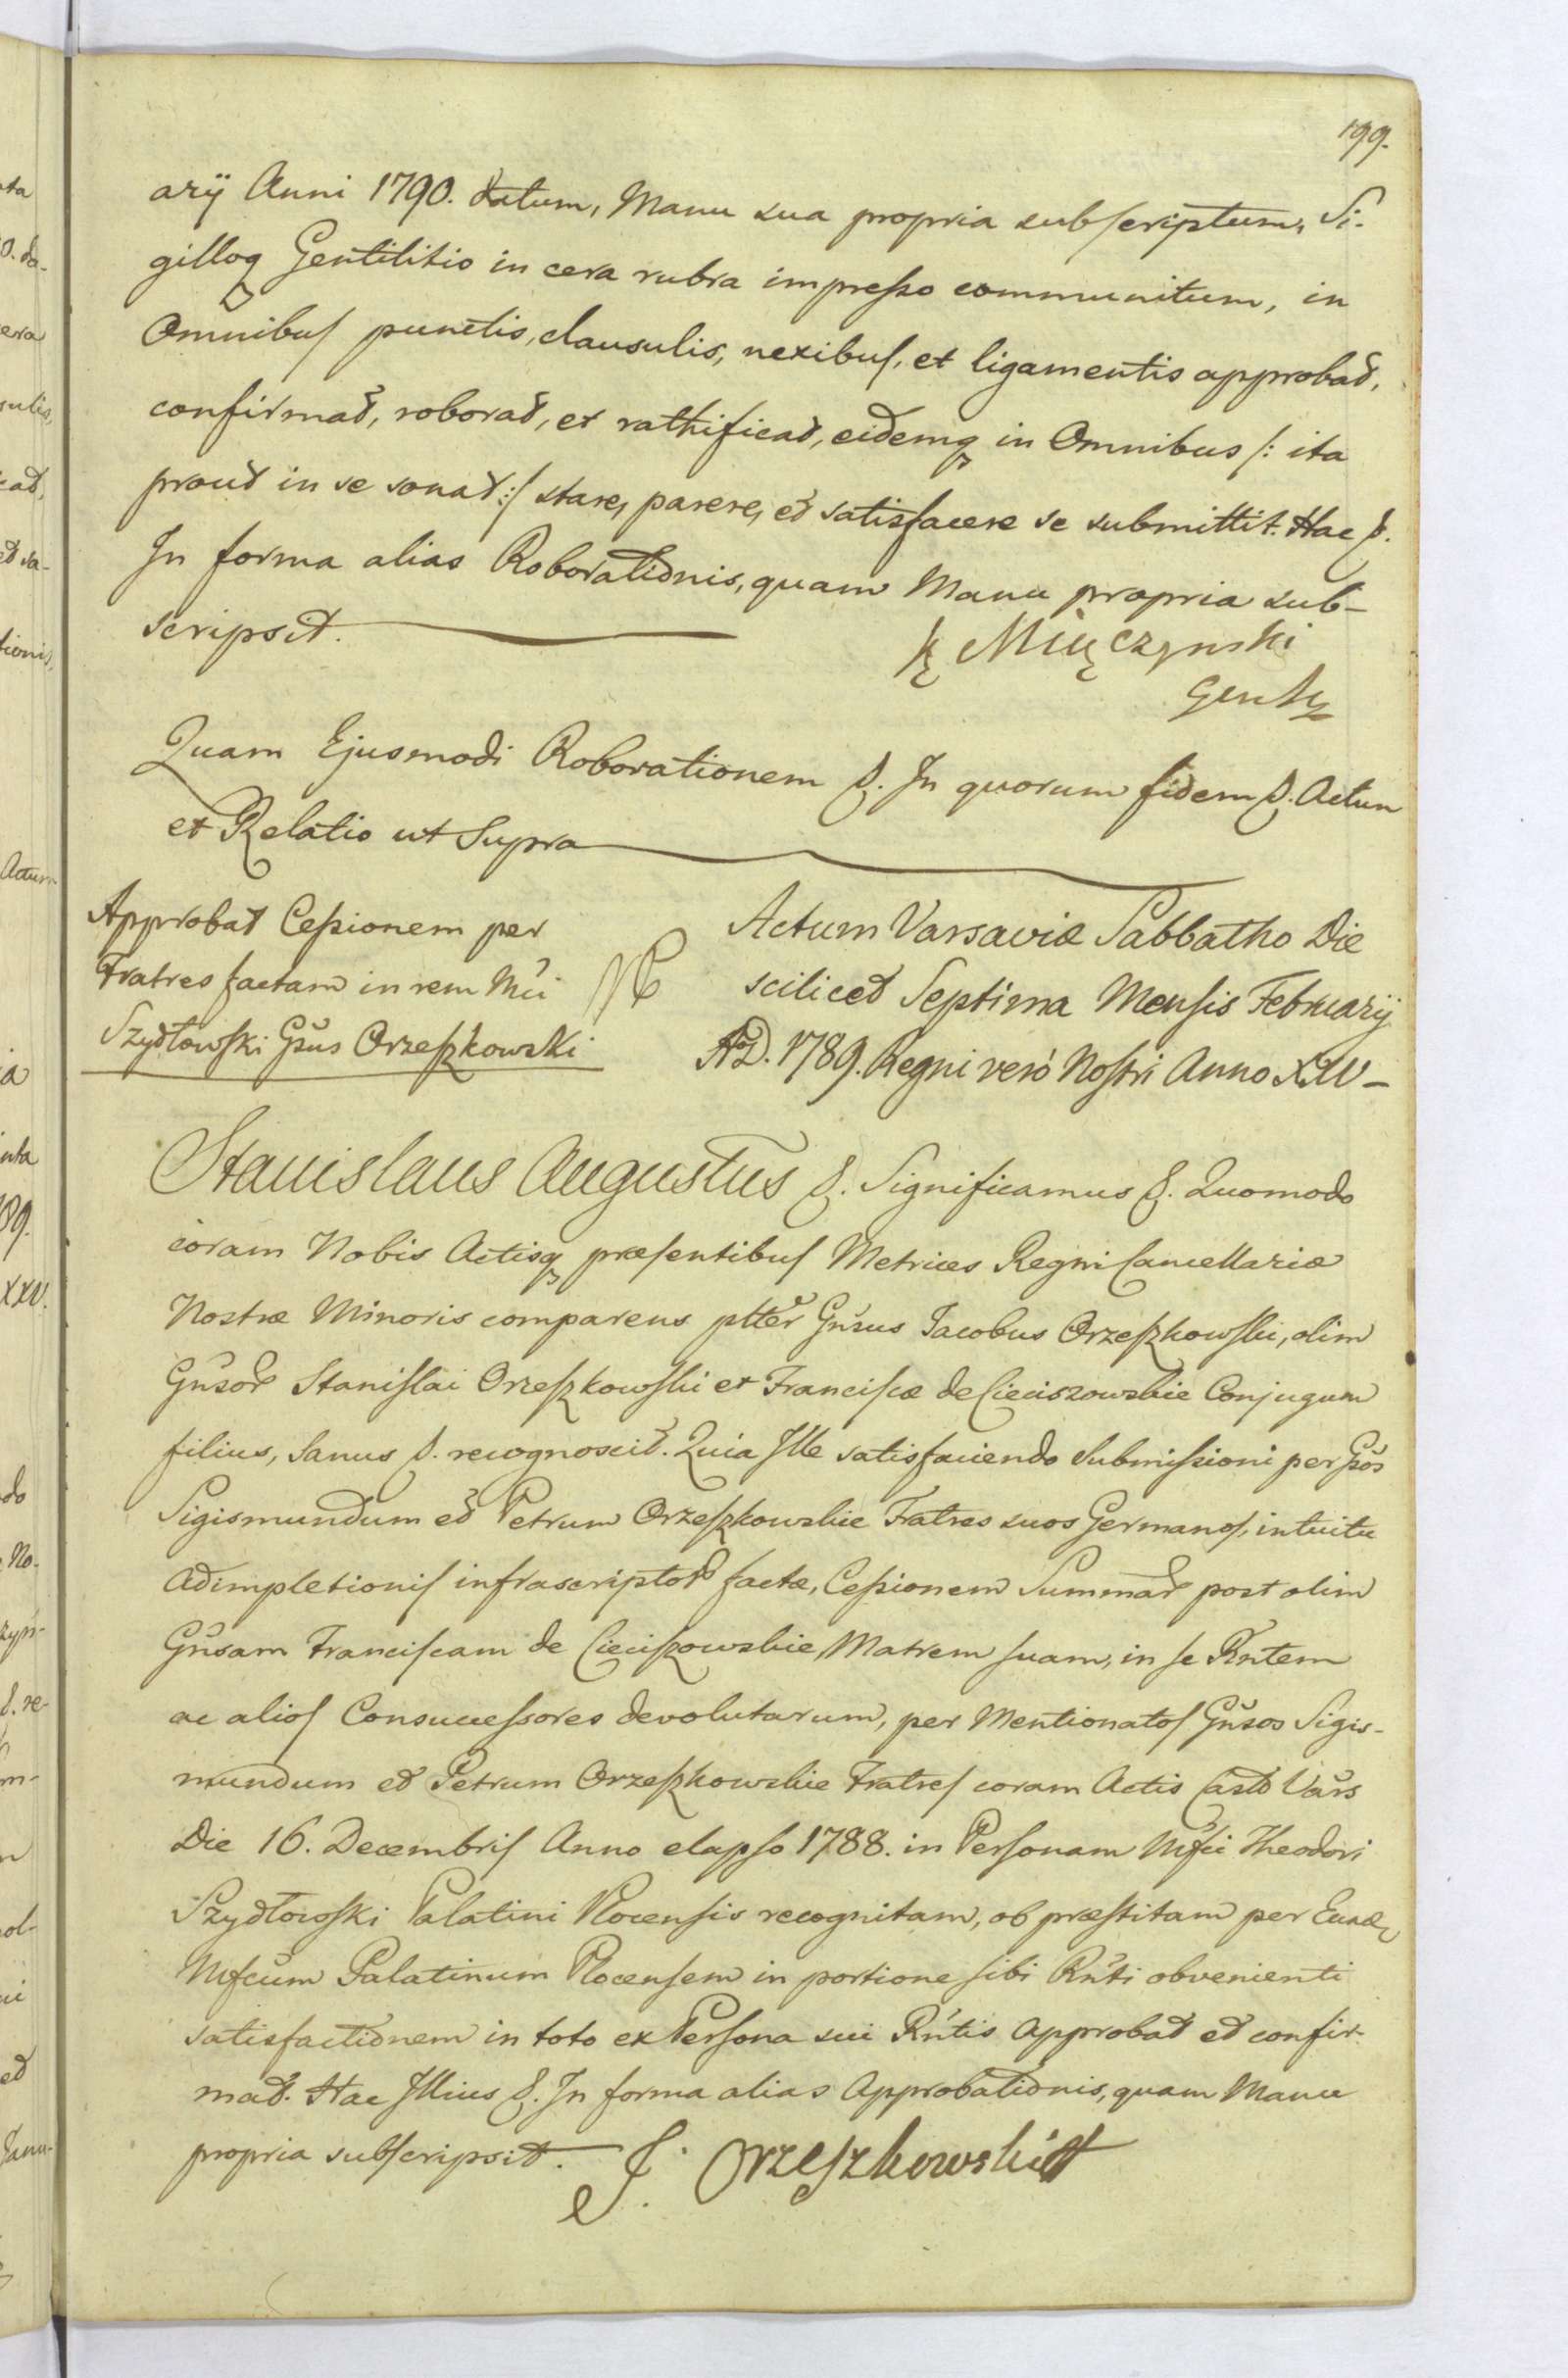 199.
arÿ Anni 1790. datum, Manu sua propria subscriptum, Si-
gilloq Gentilitio in cera rubra impresso communitum, in
Omnibus punctis, clausulis, nexibus, et ligamentis approbat,
confirmat, roborat, et rathificat, eidemq in Omnibus /: ita
prout in se sonat :/ stare, parere, et satisfacere se submittit. Hac &.
In forma alias Roborationis, quam Manu propria sub-
scripsit.
Miączynski
Quam Ejusmodi Roborationem &. In quorum fidem &. Actum
et Relatio ut Supra
Approbat Cessionem per
Fratres factam in rem Mci
Szydłowski Gsus Orzeszkowski
Actum Varsaviæ Sabbatho Die
scilicet Septima Mensis Februarÿ
AD. 1789. Regni verò Nostri Anno XXV-
Stanislaus Augustus &. Significamus &. Quomodo
coram Nobis Actisq præsentibus Metrices Regni Cancellariæ
Nostræ Minoris comparens ptter Gnsus Jacobus Orzeszkowski, olim
Gnsor Stanislai Orzeszkowski et Franciscæ de Cieciszowskie Conjugum
filius, Sanus &. recognoscit. Quia Ille satisfaciendo Submissioni per Gsos
Sigismundum et Petrum Orzeszkowskie Fratres suos Germanos, intuitu
Adimpletionis infrascriptor factæ, Cessionem Summar post olim
Gnsam Franciscam de Cieciszowskie Matrem suam, in se Rntem
ac alios Consuccessores devolutarum, per Mentionatos Gnsos Sigis-
mundum et Petrum Orzeszkowskie Fratres coram Actis Castr Vars
Die 16. Decembris Anno elapso 1788. in Personam Mfci Theodori
Szydłowski Palatini Plocensis recognitam, ob præstitam per
Mfcum Palatinum Plocensem in portione sibi Rnti obvenienti
satisfactionem in toto ex Persona sui Rntis Approbat et confir-
mat. Hac Illius &. In forma alias Approbationis, quam Manu
propria subscripsit.
J. Orzeszkowski